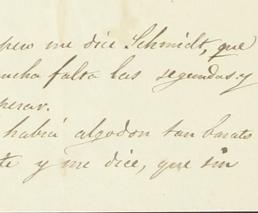 pero me dice Schmidt, que
mucha falta las segundas y
perar.
habia algodon tan barato
te y me dice, que sin